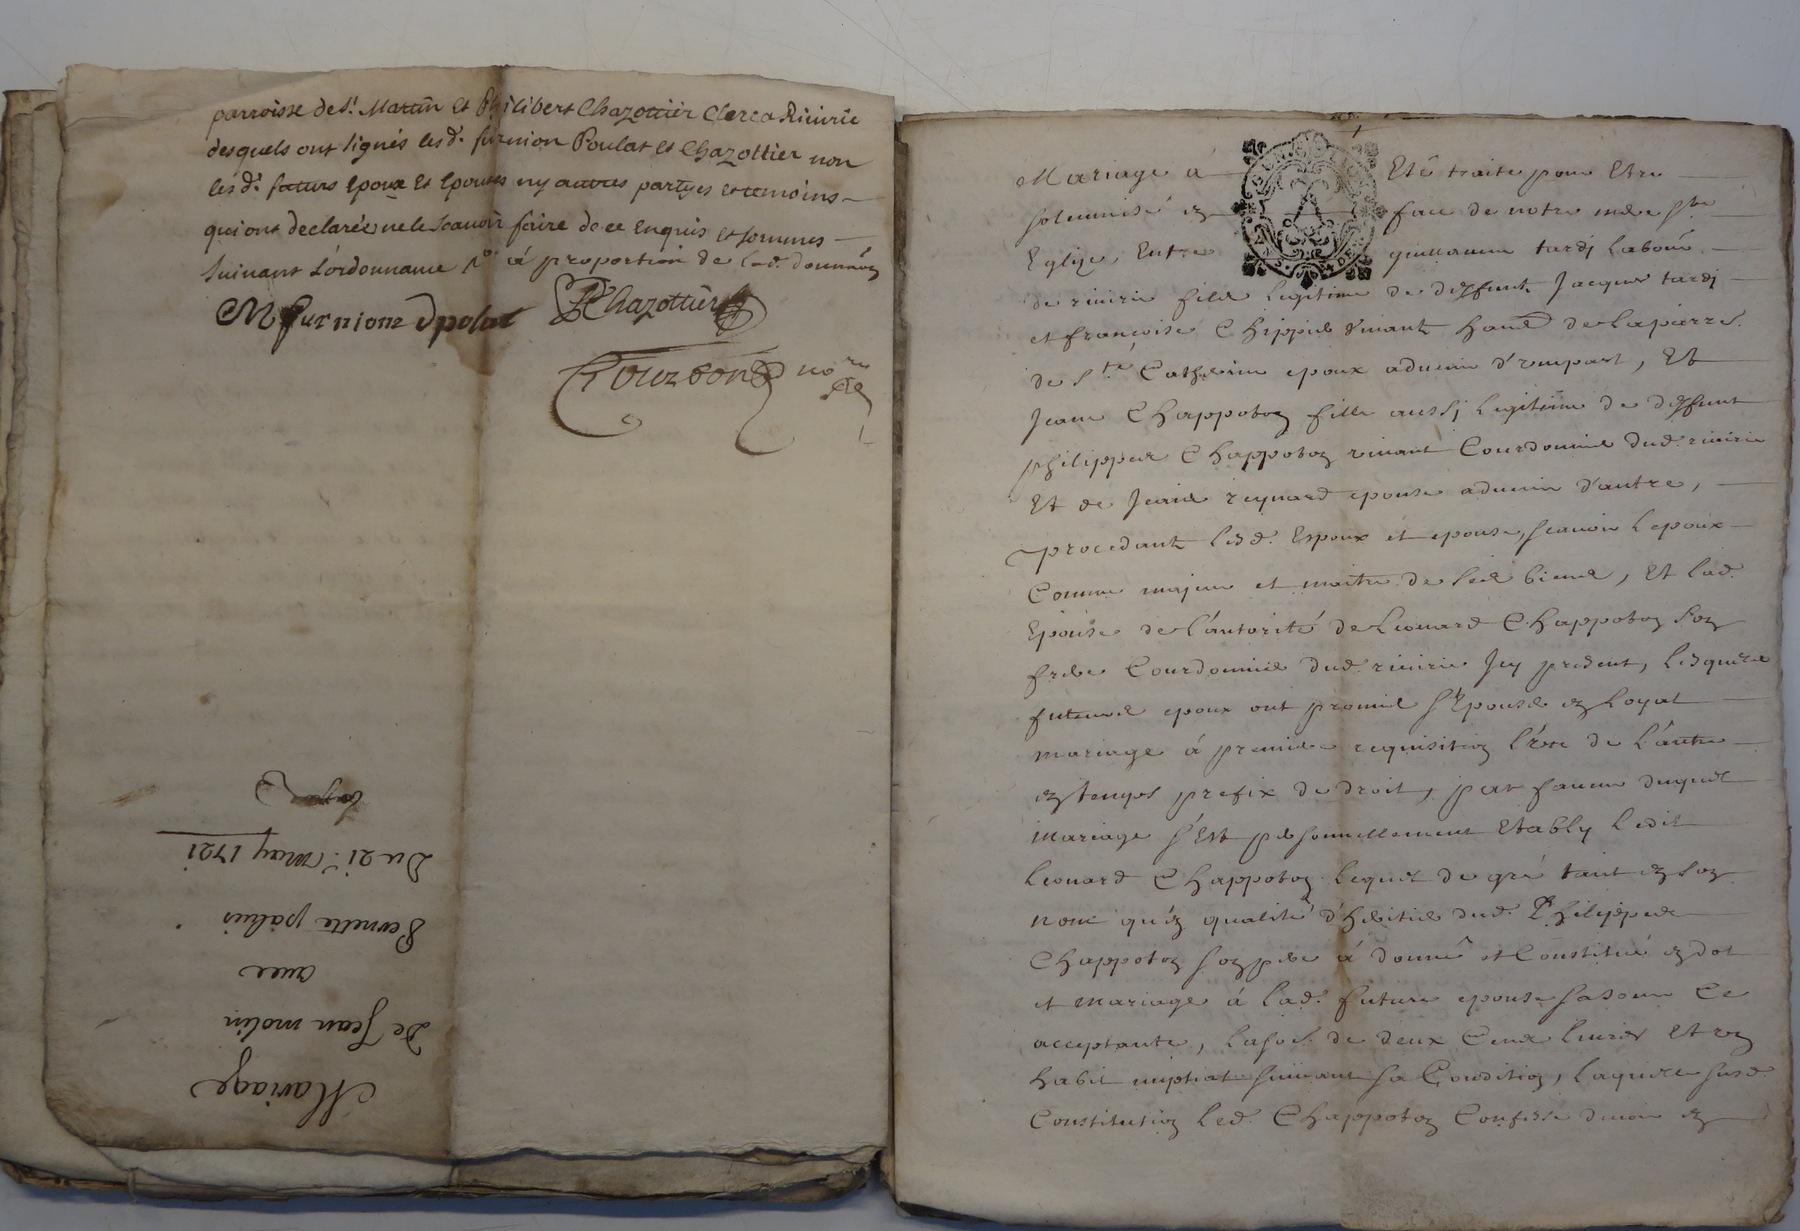 parroisse de St Martin et Philibert Chazottier Clerc a Riuirie
desquels ont signés lesd. furnion Poulat et Chazottier non
lesd. futurs Epoux et Epouses ny autres partyes et temoins
qui ont declarée ne le Scauoir faire de ce Enquis et sommes
suivant L'ordonnance à proportion de lad. donnaon
M furnion dpolat PChazottier
Gouzdon nore
Mariage
De Jean molin
auec
Pernette
Du 21e May 1721
Mariage á Eté traité pour Etre
solemnisé en face de notre mere Ste
Eglize Entre guillaume tardj labour
de riuirie fils legitime de deffunt Jacques tardj
et françoise Chippier viuant hant de laparre
de Ste Catherine epoux aduenir d'vnepart, Et
Jeane Chappoton fille aussj legitime de deffunt
philippes Chappoton viuant Courdonnier dud. riuirie
Et de Jeane reynard epouse aduenir d'autre,
procedant lesd. Espoux et epouse, scauoir l'epoux
Comme majeur et maitre de ses biens, Et lad.
Epouse de l'autorité de Leonard Chappoton son
frere Courdonnier dud. riuirie Jcy present, lesquels
futeurs epoux ont promis s'Epouser en loyal
mariage á premiere requisition l'vn de l'autre
en temps prefix de droit, par faueur duquel
Mariage s'Est personnellement Etably ledit
Leonard Chappoton lequel de gré tant en son
nom qu'en qualité d'heritier dud. Philippes
Chappoton son pere á donné et Constitué en dot
et mariage á lad. future epouse sa soeur Ce
acceptante, la so. de deux Cens liures Et vn
habit nuptial suiuant sa Condition, laquelle susd.
Constitution led. Chappoton Confesse deuoir en